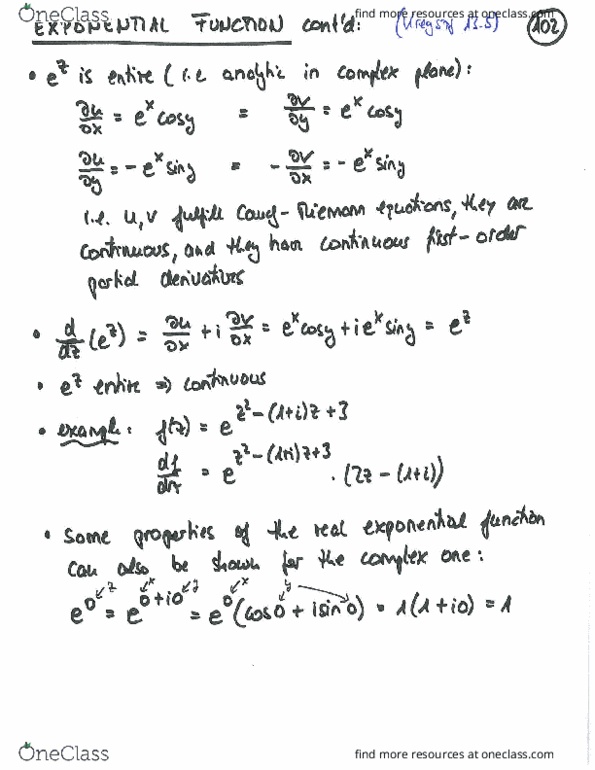 OneClass
find more resources at oneclass.com
EXPONENTIAL FUNCTION cont'd: (Kreyszig 13.5) 102
• e^z is entire (i.e analytic in complex plane):
∂u/∂x = e^x cosy = ∂v/∂y = e^x cosy
∂u/∂y = -e^x siny = -∂v/∂x = -e^x siny
i.e. u,v fulfill Cauchy-Riemann equations, they are
continuous, and they have continuous first-order
partial derivatives
• d/dz (e^z) = ∂u/∂x + i ∂v/∂x = e^x cosy + i e^x siny = e^z
• e^z entire => continuous
• example: f(z) = e^{z^2-(1+i)z+3}
df/dz = e^{z^2-(1+i)z+3} · (2z-(1+i))
• Some properties of the real exponential function
can also be shown for the complex one:
z x y x y
e^0 = e^{0+i0} = e^0 (cos0 + isin0) = 1(1+i0) = 1
OneClass
find more resources at oneclass.com